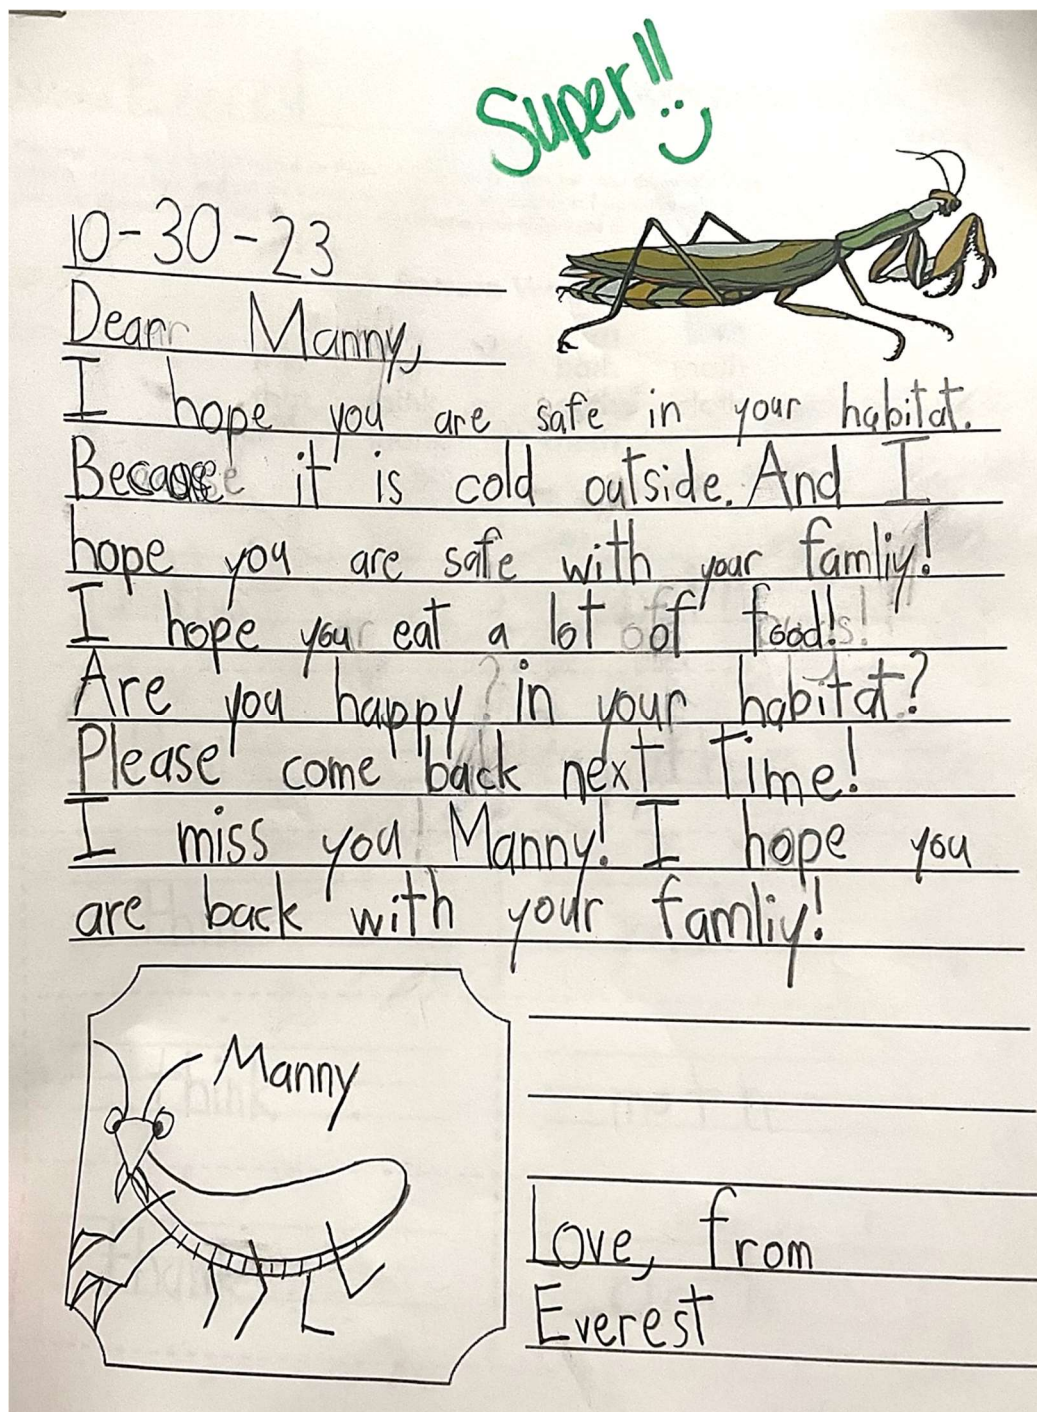 Super!!
10-30-23
Dear Manny,
I hope you are safe in your habitat.
Because it is cold outside. And I
hope you are safe with your famliy!
I hope you eat a lot of food!
Are you happy in your habitat?
Please come back next Time!
I miss you Manny! I hope you
are back with your famliy!
Manny
Love, from
Everest